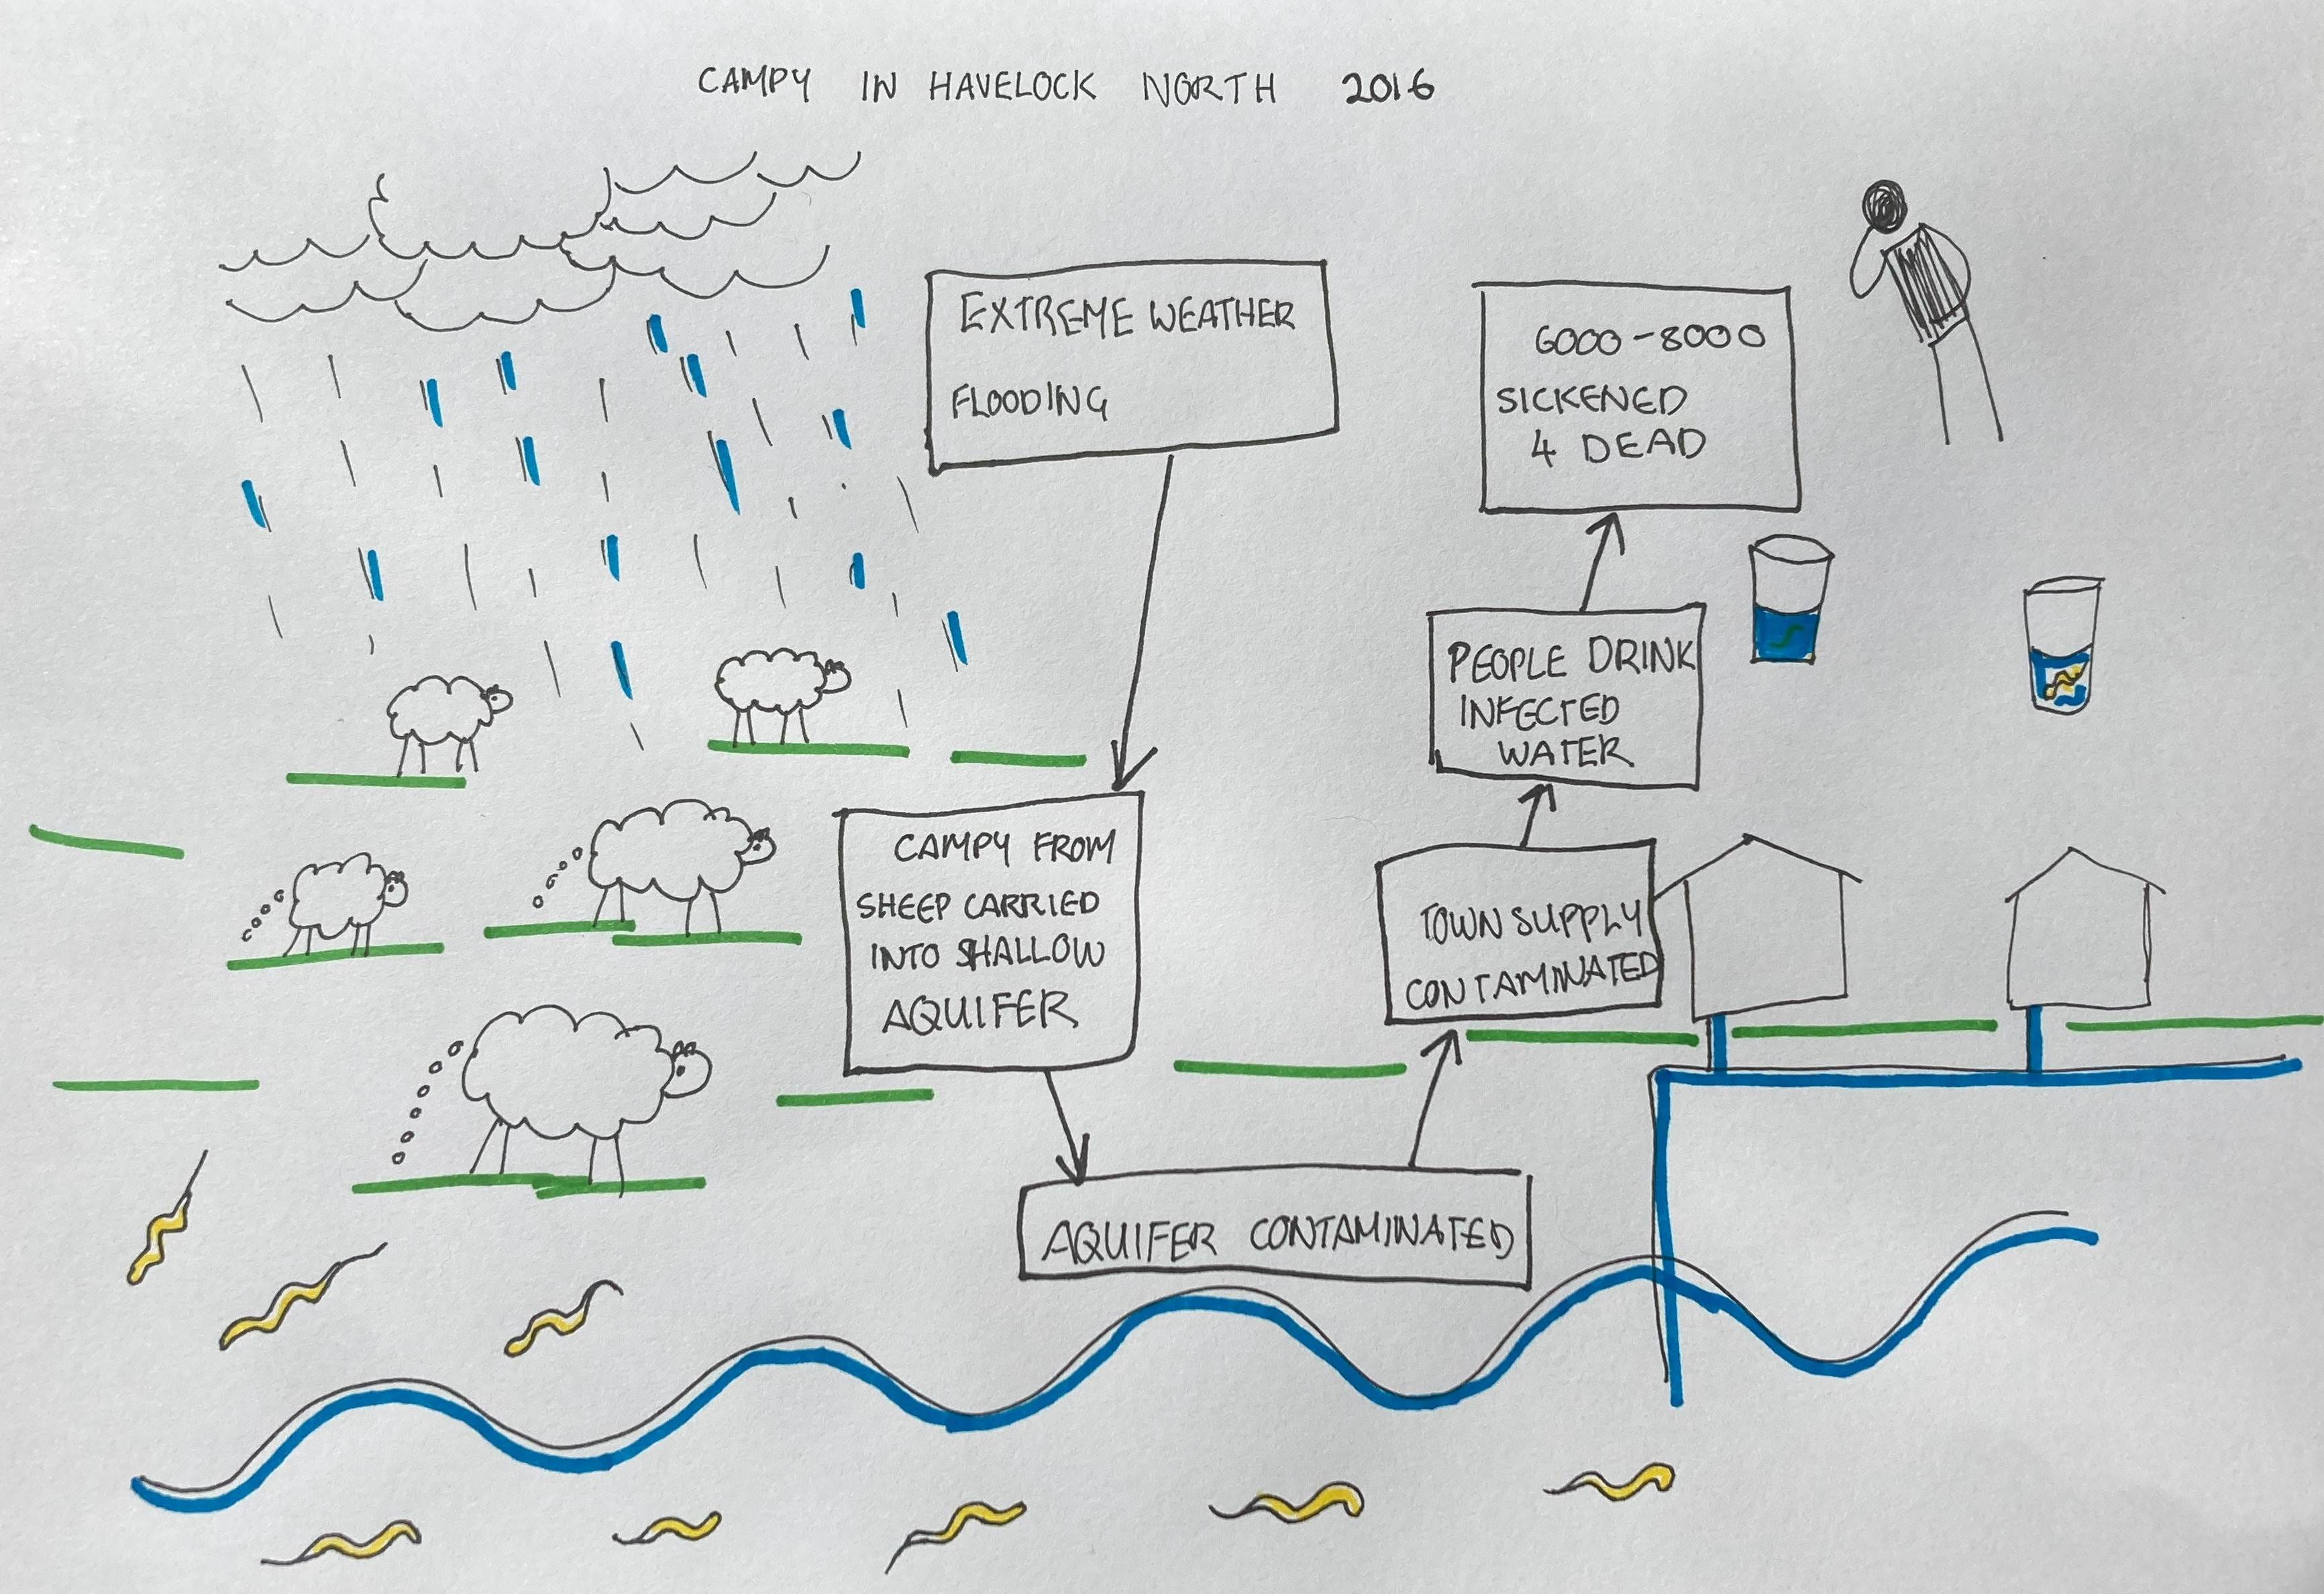 CAMPY IN HAVELOCK NORTH 2016
EXTREME WEATHER
FLOODING
CAMPY FROM
SHEEP CARRIED
INTO SHALLOW
AQUIFER
AQUIFER CONTAMINATED
TOWN SUPPLY
CONTAMINATED
PEOPLE DRINK
INFECTED
WATER
6000-8000
SICKENED
4 DEAD